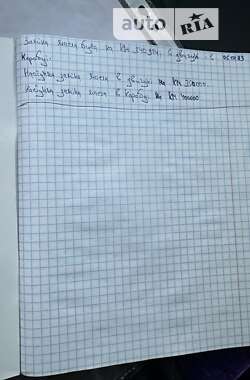 auto RIA
Заміна масла була на КМ 340 914. в двигуні і в
Коробці.
Наступна заміна масла в двигуні на КМ 350000.
Наступна заміна масла в Коробці на КМ 400000